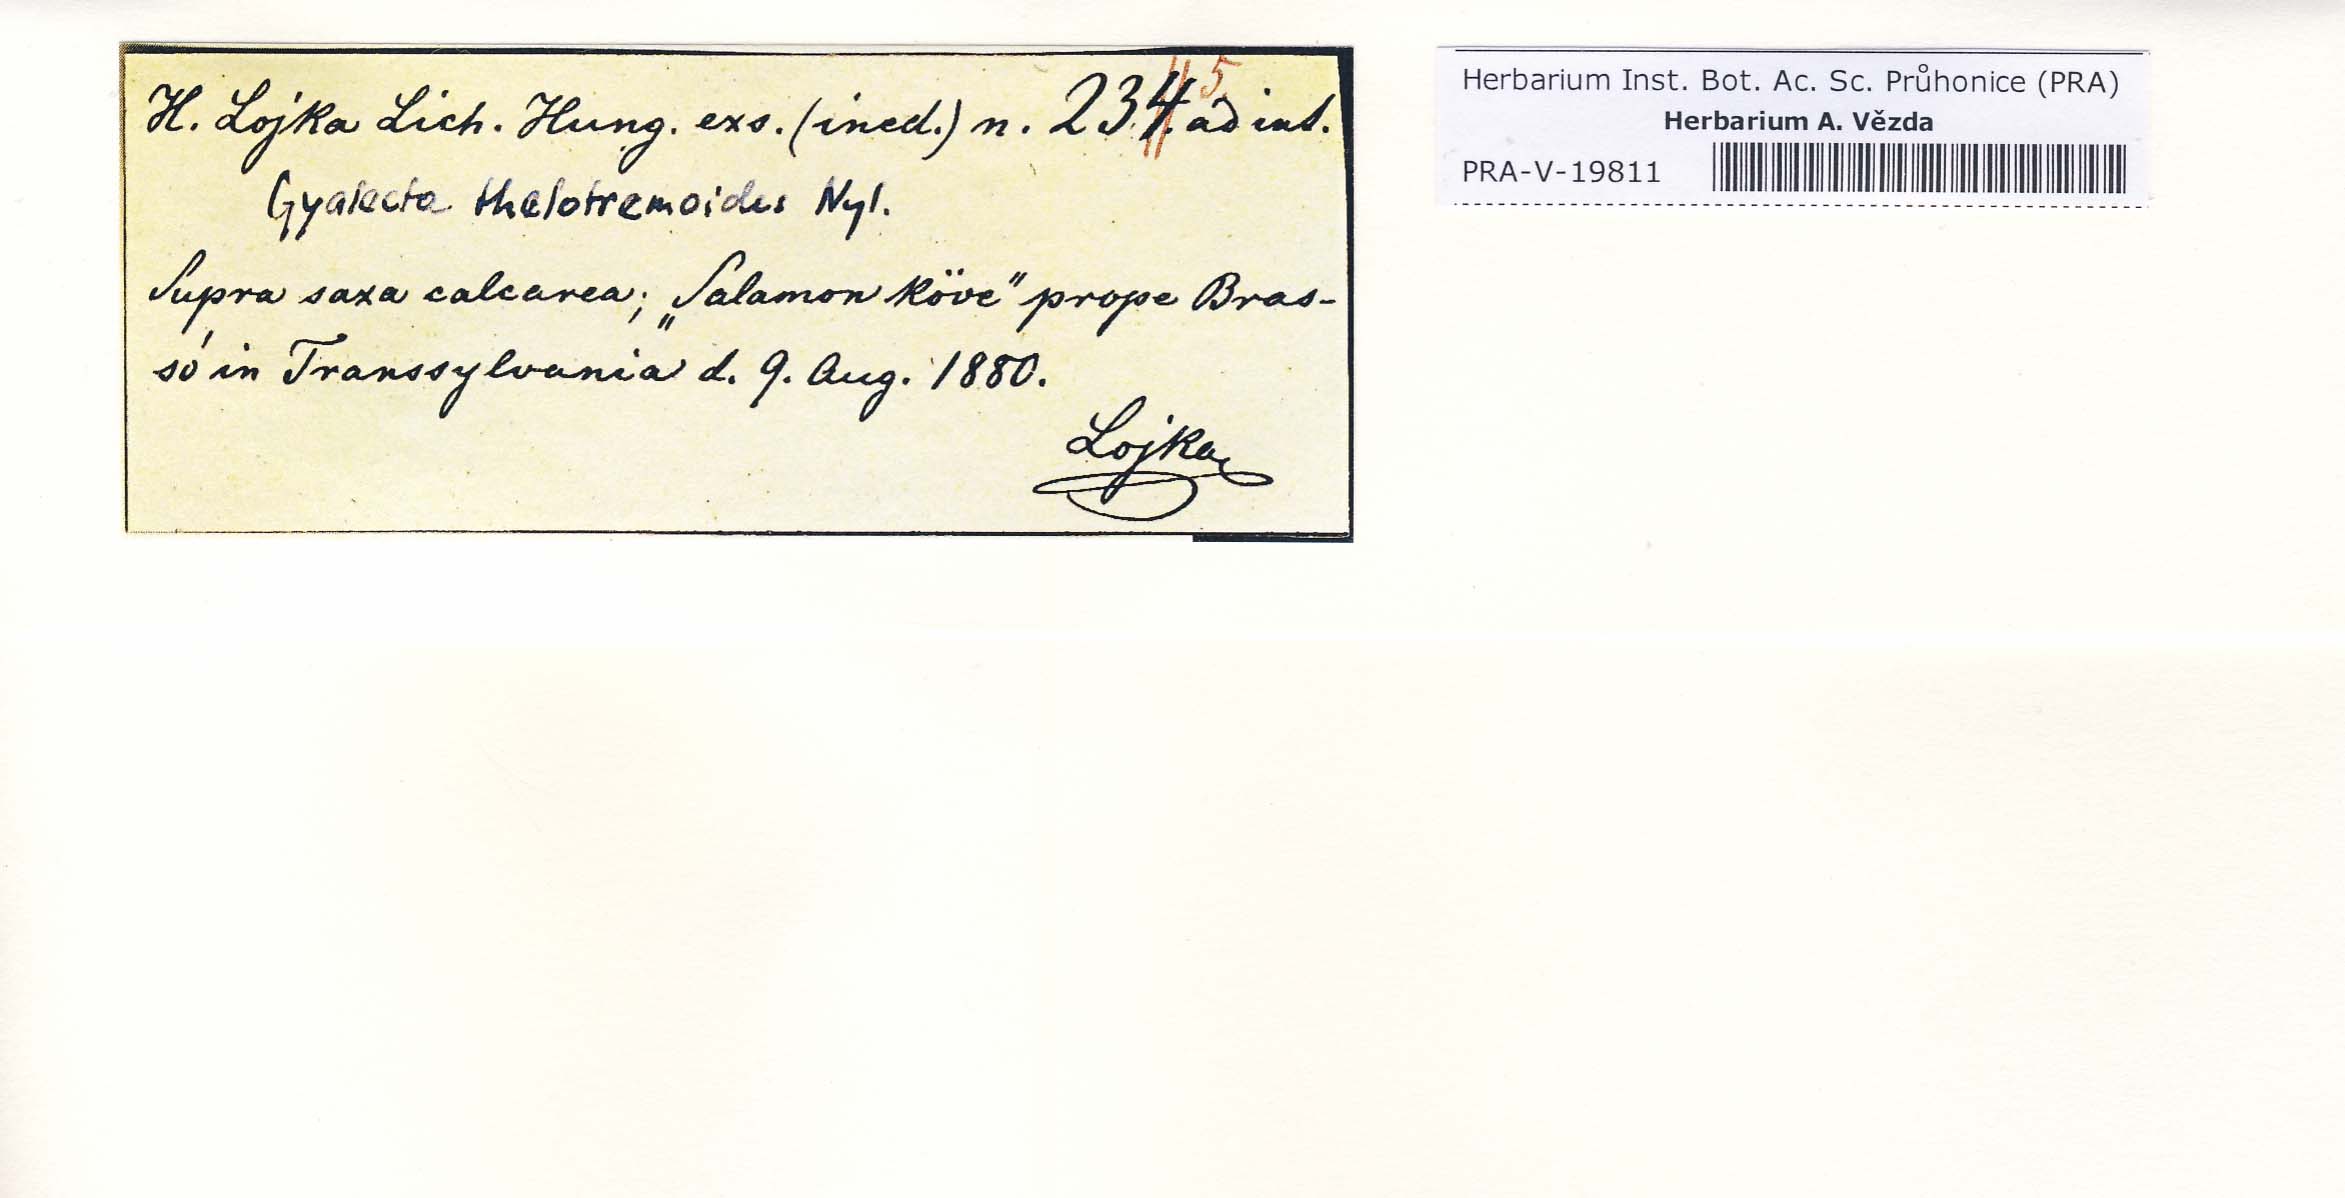 H. Lojka Lich. Hung. exs. (ined.) n. 234. ad int.
5
Gyalecta thelotremoides Nyl.
Supra saxa calcarea; „Salamon köve" prope Bras-
só in Transsylvania d. 9. Aug. 1880.
Lojka
Herbarium Inst. Bot. Ac. Sc. Průhonice (PRA)
Herbarium A. Vězda
PRA-V-19811